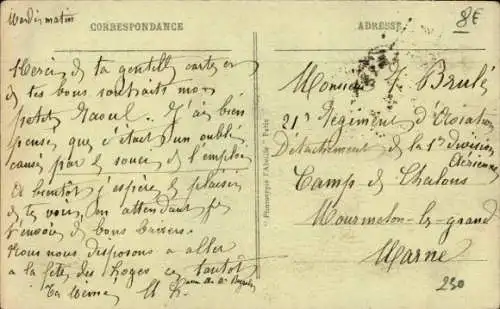 Mardi matin
CORRESPONDANCE
Merci de ta gentille carte et
de tes bons souhaits mon
petit Raoul. J'ai bien
pensé que c'était un oubli
causé par le souci de l'emploi
A bientôt j'espère le plaisir
de te voir, en attendant je
t'envoie de bons baisers.
Nous nous disposons a aller
a la fête des Loges cet tantôt
Ta
ADRESSE
8E
Monsieur R. Brulé
21e Régiment d'Aviation
Détachement de la 1re Division
Aérienne
Camp de Chalons
Mourmelon-le-grand
Marne
230
"Phototypie l'Abeille" Paris